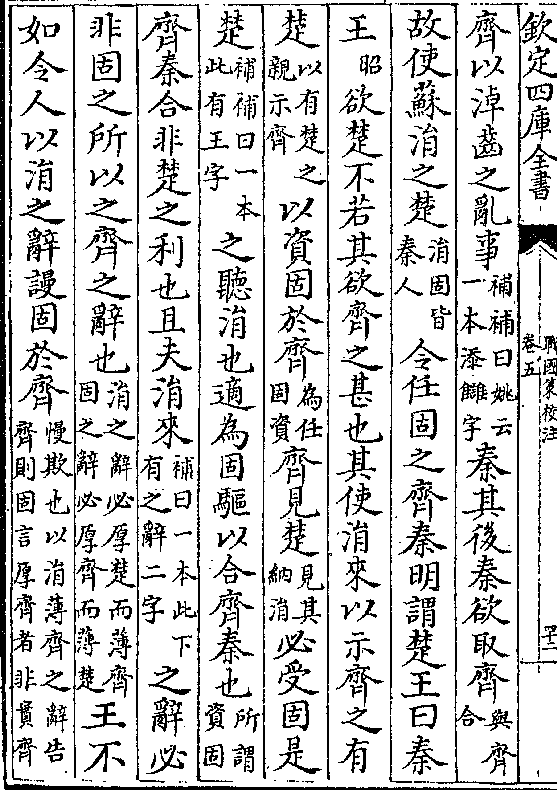 欽定四庫全書
戰國策校注
卷五
四十二
齊以淖齒之亂事補補曰姚云一本添讎字秦其後秦欲取齊與齊合
故使蘇涓之楚涓固皆秦人令任固之齊齊明謂楚王曰秦
王昭欲楚不若其欲齊之甚也其使涓來以示齊之有
楚以有楚之親示齊以資固於齊為任固資齊見楚見其納涓必受固是
楚補補曰一本此有王字之聽涓也適為固驅以合齊秦也所謂資固
齊秦合非楚之利也且夫涓來補曰一本此下有之辭二字之辭必
非固之所以之齊之辭也涓之辭必厚楚而薄齊固之辭必厚齊而薄楚王不
如令人以涓之辭謾固於齊慢欺也以涓薄齊之辭告齊則固言厚齊者非貫齊